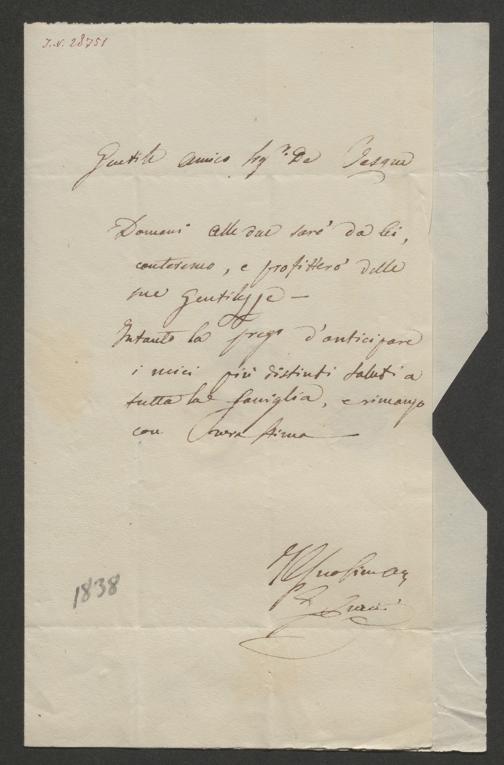 I.N. 28751
Gentile amico Sigr. De Vesque
Domani alle due sarò da lei,
canteremo, e profitterò delle
sue gentilezze —
Intanto la prego d'anticipare
i miei più distinti saluti a
tutta la famiglia, e rimango
con vera stima —
1838